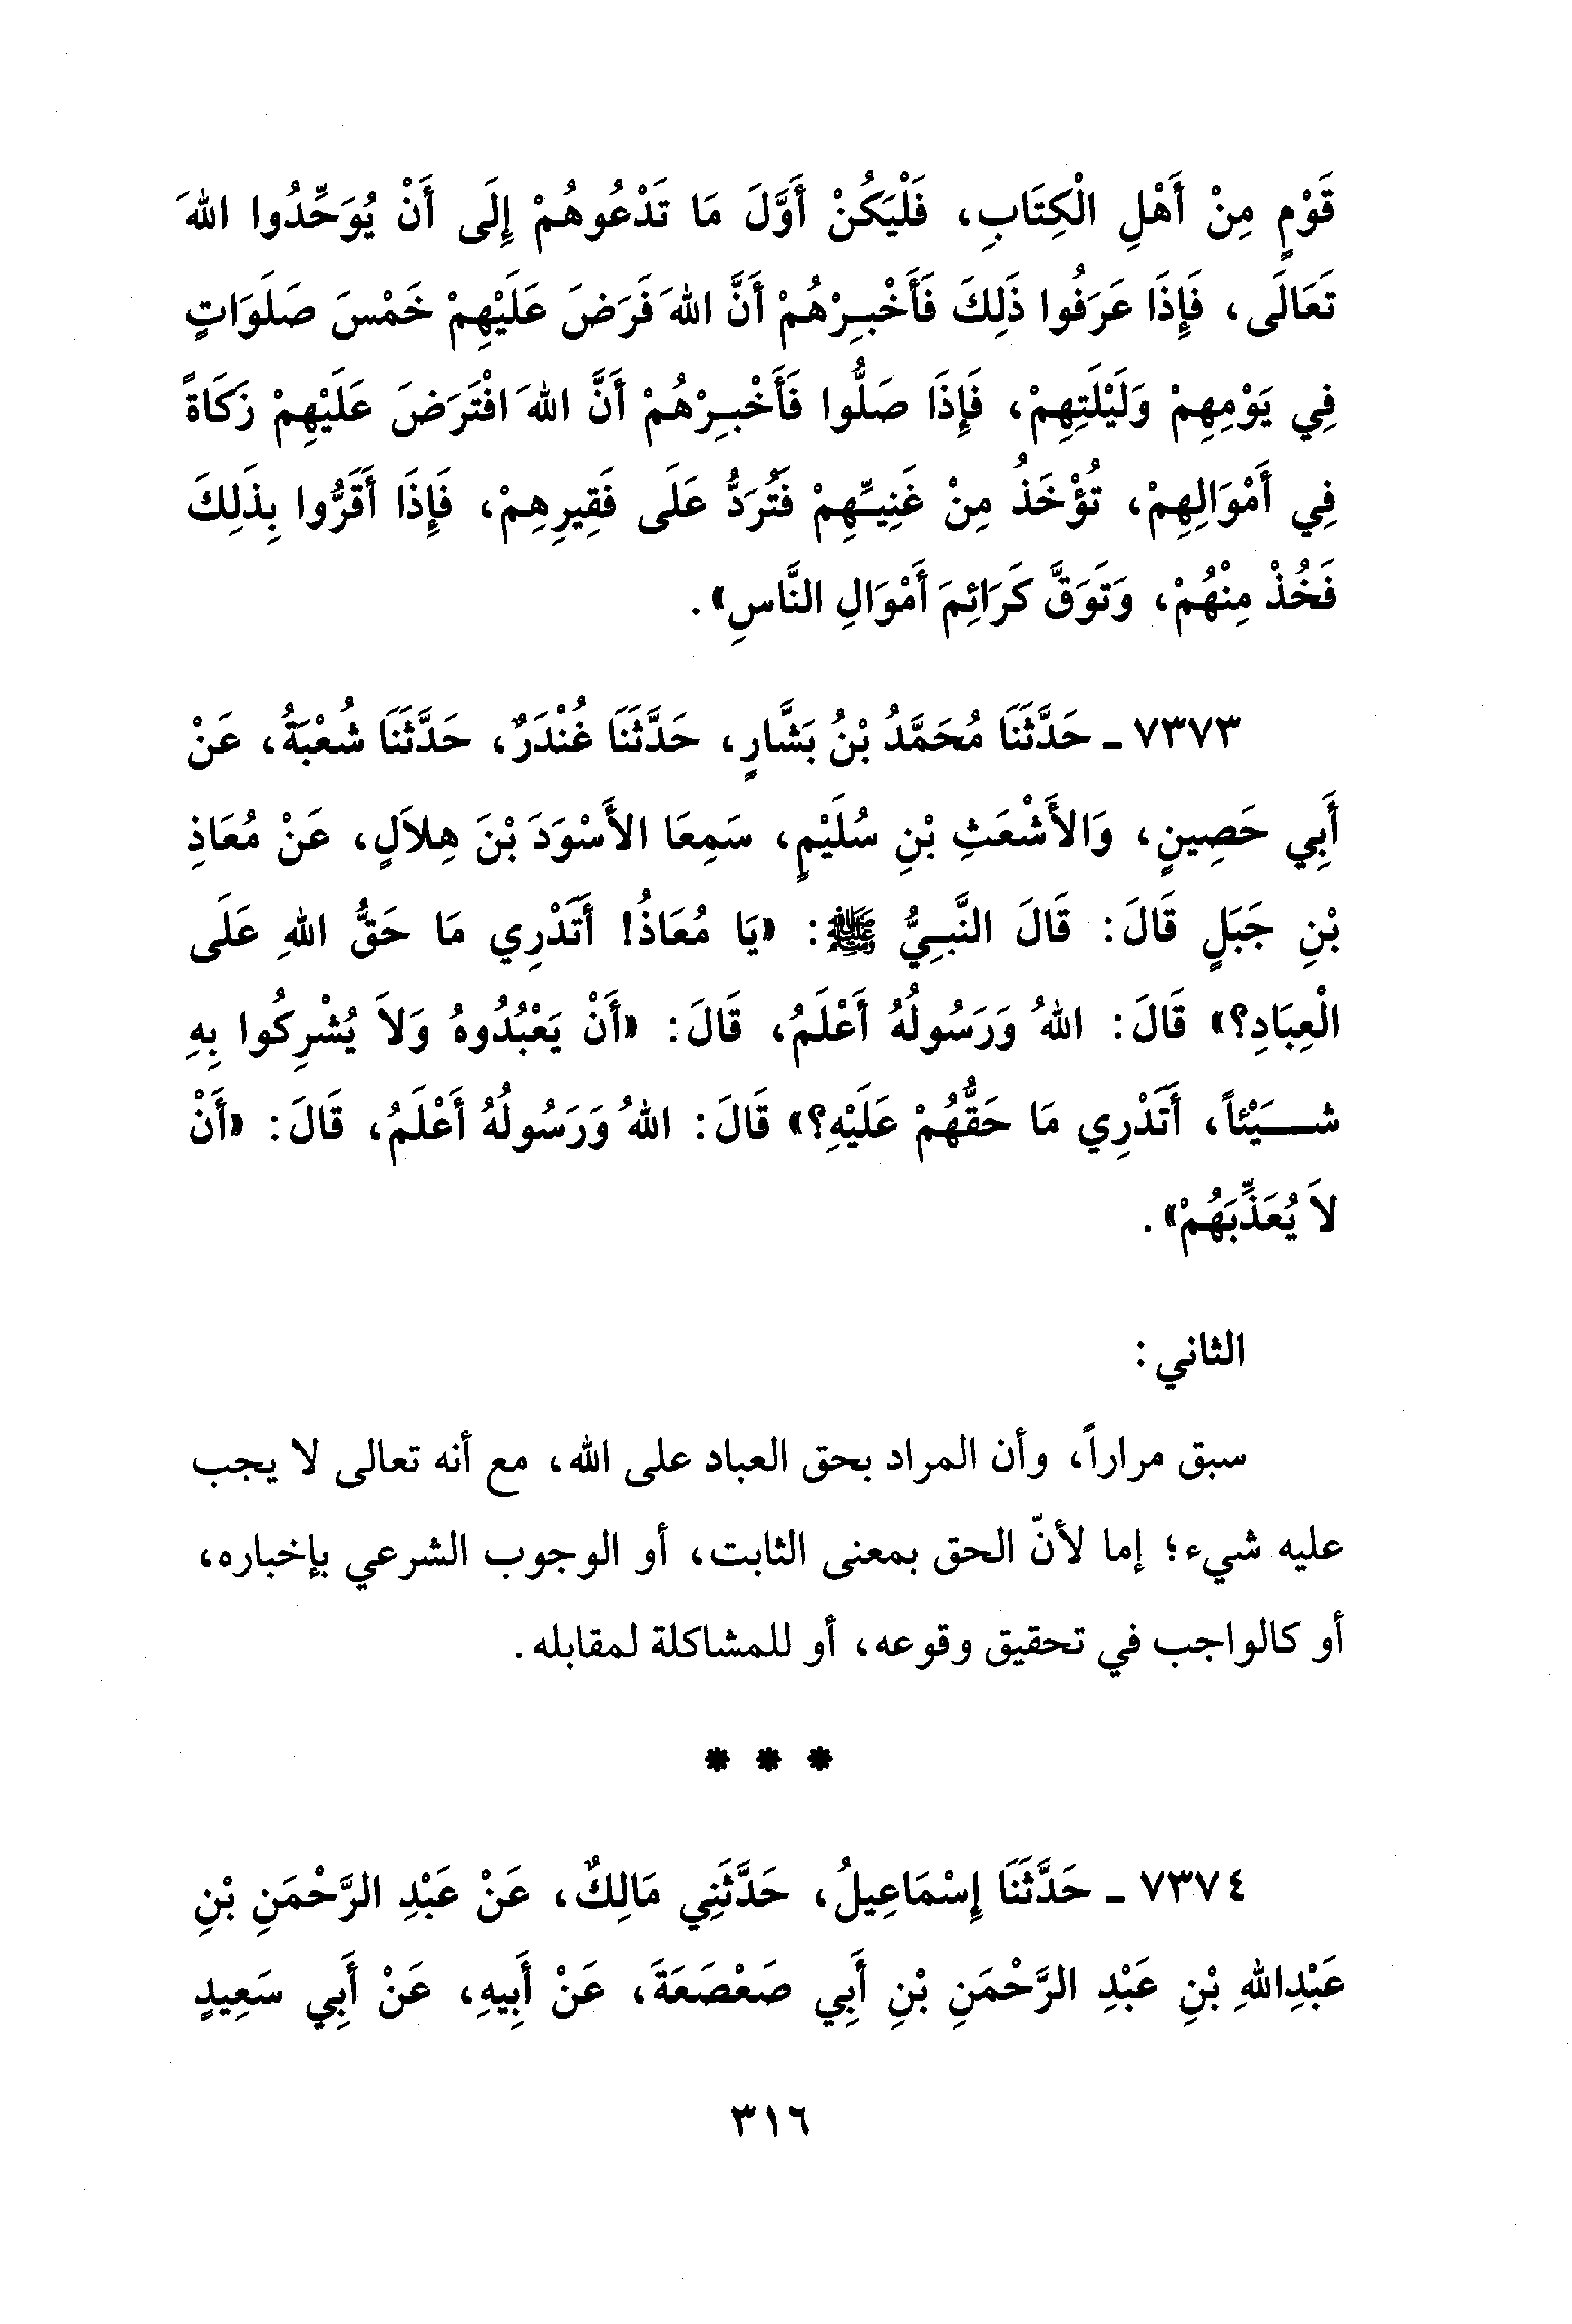 قَوْمٍ مِنْ أَهْلِ الْكِتَابِ، فَلْيَكُنْ أَوَّلَ مَا تَدْعُوهُمْ إِلَى أَنْ يُوَحِّدُوا اللهَ
تَعَالَى، فَإِذَا عَرَفُوا ذَلِكَ فَأَخْبِرْهُمْ أَنَّ اللهَ فَرَضَ عَلَيْهِمْ خَمْسَ صَلَوَاتٍ
فِي يَوْمِهِمْ وَلَيْلَتِهِمْ، فَإِذَا صَلُّوا فَأَخْبِرْهُمْ أَنَّ اللهَ افْتَرَضَ عَلَيْهِمْ زَكَاةً
فِي أَمْوَالِهِمْ، تُؤْخَذُ مِنْ غَنِيِّهِمْ فَتُرَدُّ عَلَى فَقِيرِهِمْ، فَإِذَا أَقَرُّوا بِذَلِكَ
فَخُذْ مِنْهُمْ، وَتَوَقَّ كَرَائِمَ أَمْوَالِ النَّاسِ».
٧٣٧٣ ـ حَدَّثَنَا مُحَمَّدُ بْنُ بَشَّارٍ، حَدَّثَنَا غُنْدَرٌ، حَدَّثَنَا شُعْبَةُ، عَنْ
أَبِي حَصِينٍ، وَالأَشْعَثِ بْنِ سُلَيْمٍ، سَمِعَا الأَسْوَدَ بْنَ هِلاَلٍ، عَنْ مُعَاذِ
بْنِ جَبَلٍ قَالَ: قَالَ النَّبِيُّ ﷺ: «يَا مُعَاذُ! أَتَدْرِي مَا حَقُّ اللهِ عَلَى
الْعِبَادِ؟» قَالَ: اللهُ وَرَسُولُهُ أَعْلَمُ، قَالَ: «أَنْ يَعْبُدُوهُ وَلاَ يُشْرِكُوا بِهِ
شَيْئاً، أَتَدْرِي مَا حَقُّهُمْ عَلَيْهِ؟» قَالَ: اللهُ وَرَسُولُهُ أَعْلَمُ، قَالَ: «أَنْ
لاَ يُعَذِّبَهُمْ».
الثاني:
سبق مراراً، وأن المراد بحق العباد على الله، مع أنه تعالى لا يجب
عليه شيء؛ إما لأنّ الحق بمعنى الثابت، أو الوجوب الشرعي بإخباره،
أو كالواجب في تحقيق وقوعه، أو للمشاكلة لمقابله.
* * *
٧٣٧٤ ـ حَدَّثَنَا إِسْمَاعِيلُ، حَدَّثَنِي مَالِكٌ، عَنْ عَبْدِ الرَّحْمَنِ بْنِ
عَبْدِاللهِ بْنِ عَبْدِ الرَّحْمَنِ بْنِ أَبِي صَعْصَعَةَ، عَنْ أَبِيهِ، عَنْ أَبِي سَعِيدٍ
٣١٦